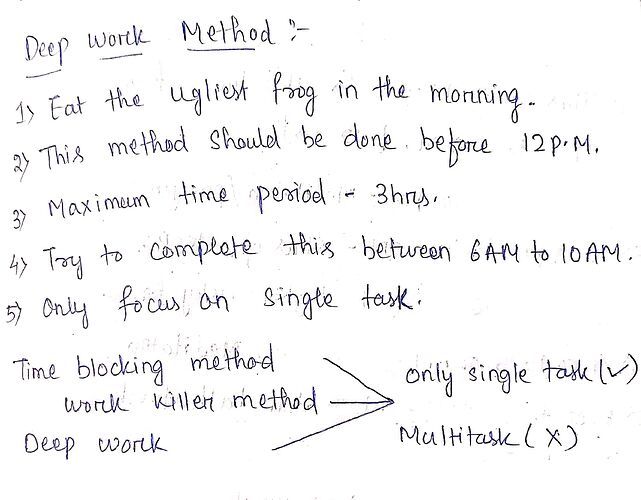 Deep work Method :-
1) Eat the ugliest frog in the morning.
2) This method should be done before 12 P.M.
3) Maximum time period - 3hrs.
4) Try to complete this between 6AM to 10AM.
5) Only focus on single task.
Time blocking method
work killer method
Deep work
only single task (✓)
Multitask (X)